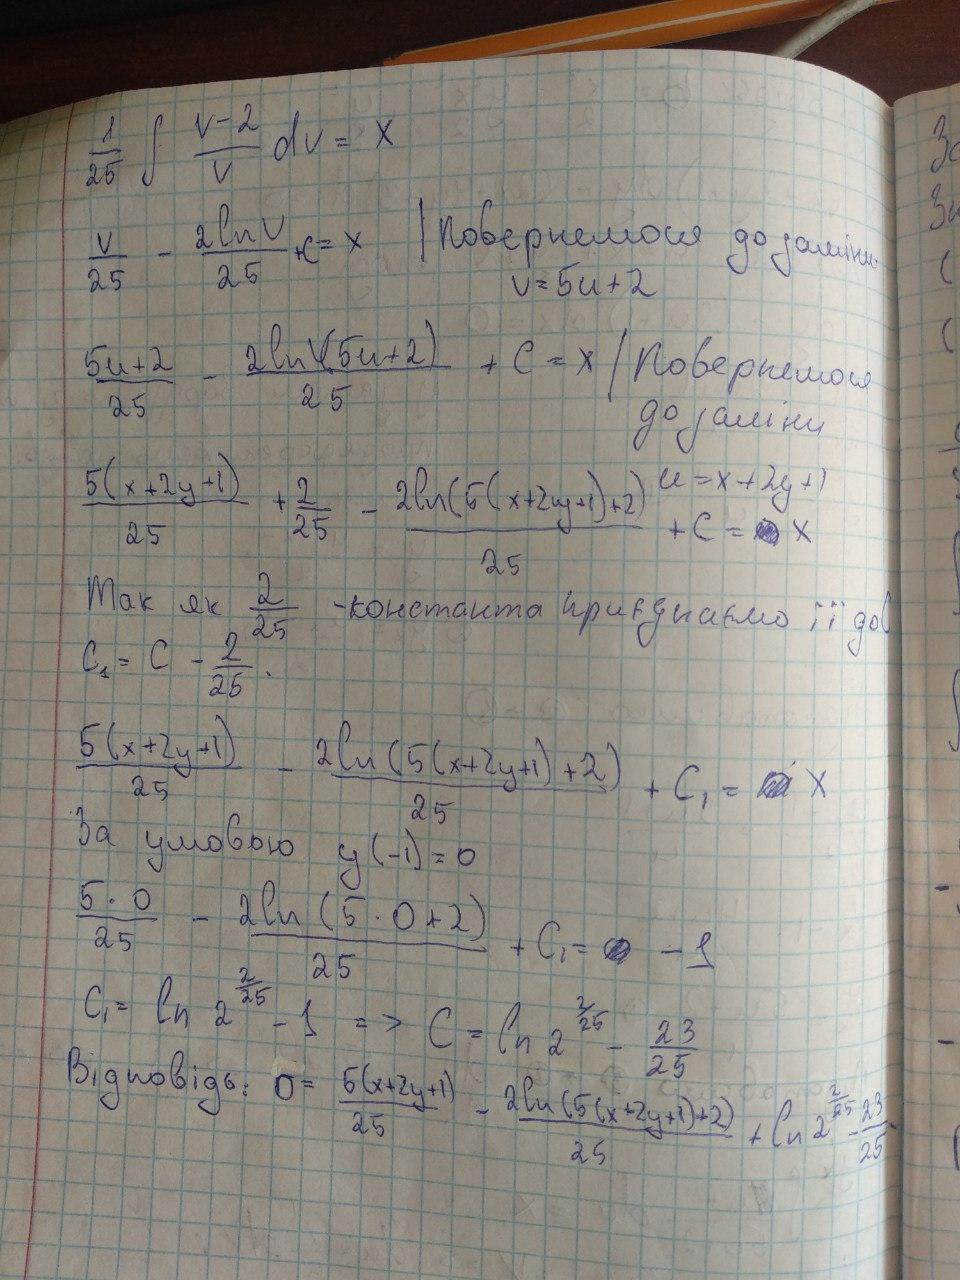 1/25 ∫ (v-2)/v dv = x
v/25 - 2lnv/25 + c = x | Повернемося до заміни
v=5u+2
(5u+2)/25 - 2ln(5u+2)/25 + C = x / Повернемося
до заміни
5(x+2y+1)/25 + 2/25 - 2ln(5(x+2y+1)+2)/25 + C = x
u=x+2y+1
Так як 2/25 - константа приєднаємо її до
C₁ = C - 2/25.
5(x+2y+1)/25 - 2ln(5(x+2y+1)+2)/25 + C₁ = x
За умовою y(-1)=0
5·0/25 - 2ln(5·0+2)/25 + C₁ = -1
C₁ = ln 2^(2/25) - 1 => C = ln 2^(2/25) - 23/25
Відповідь: 0 = 5(x+2y+1)/25 - 2ln(5(x+2y+1)+2)/25 + ln 2^(2/25) - 23/25